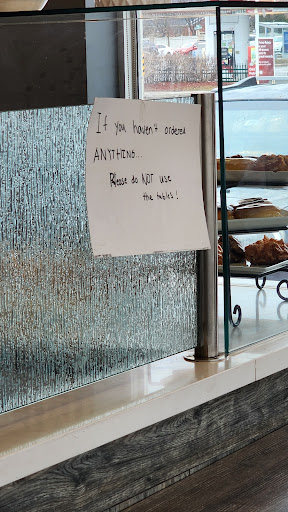 If you haven't ordered
ANYTHING...
Please do NOT use
the tables!